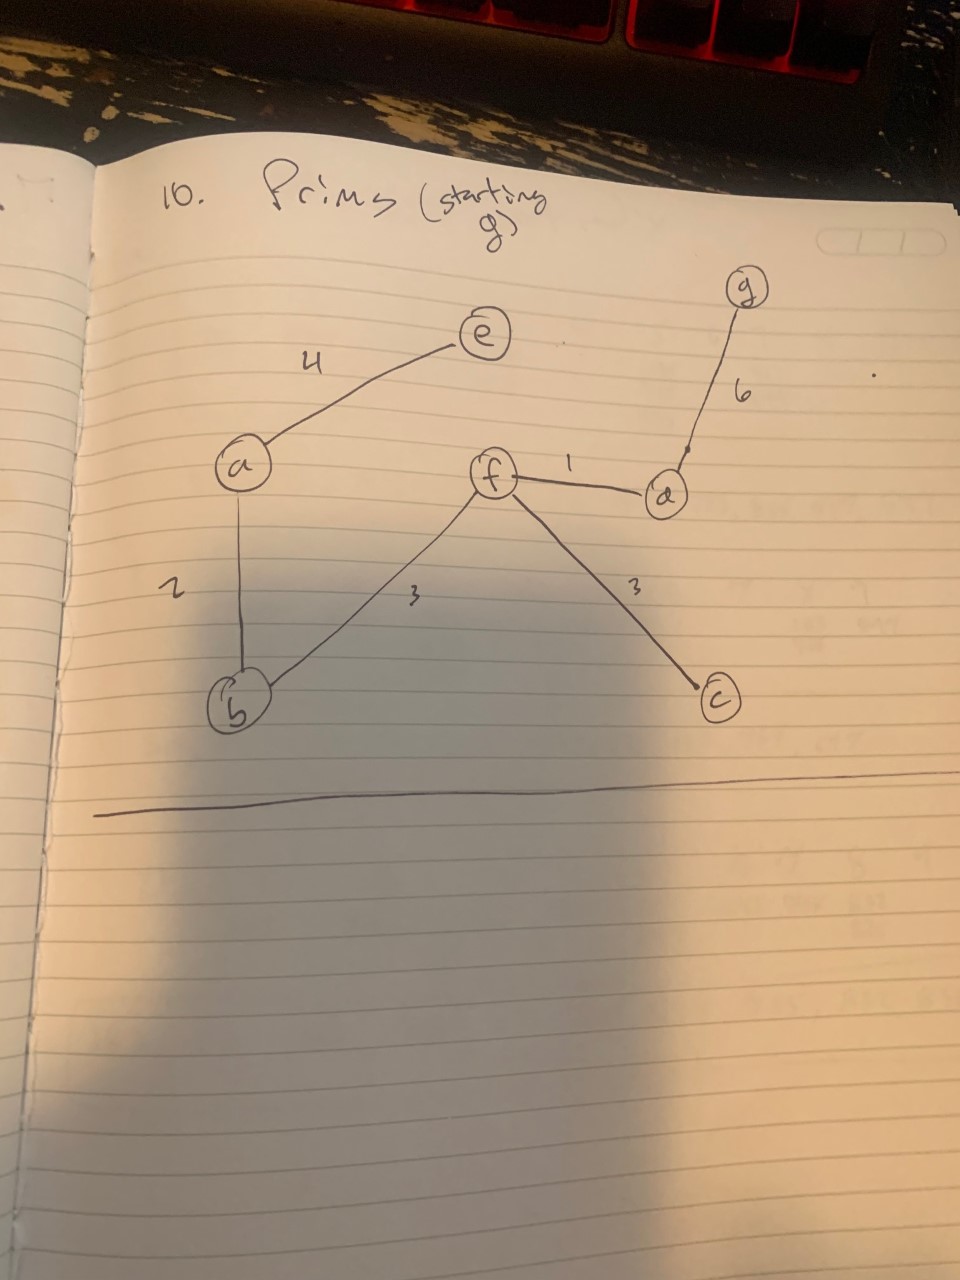 10. Prims (starting
g)
g
e
4
6
a
f
1
d
2
3
3
b
c